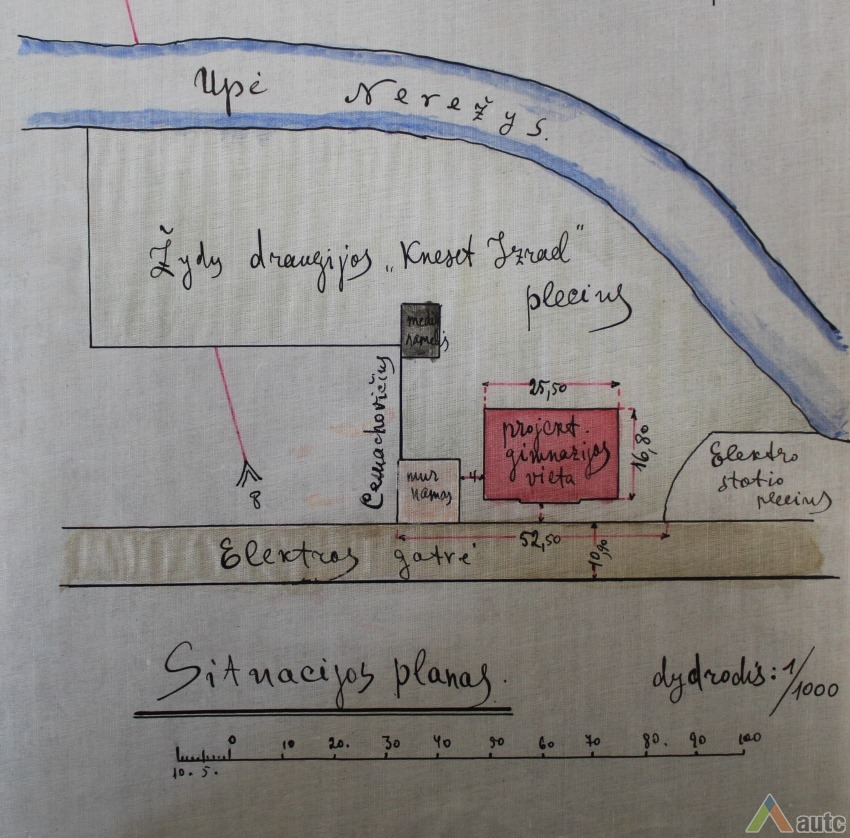 Upė Nerežys.
Žydų draugijos „Kneset Izrael“
plecius
medin
namelis
Cemachovičius
25,50
projekt.
gimnazijos
vieta
16,80
Elektro
statio
plecius
mur
namas
4
8
52,50
10,90
Elektros gatvė
Situacijos planas.
dydrodis: 1/1000
0 10 20. 30 40 50 60 70 80. 90 100
10. 5.
autc